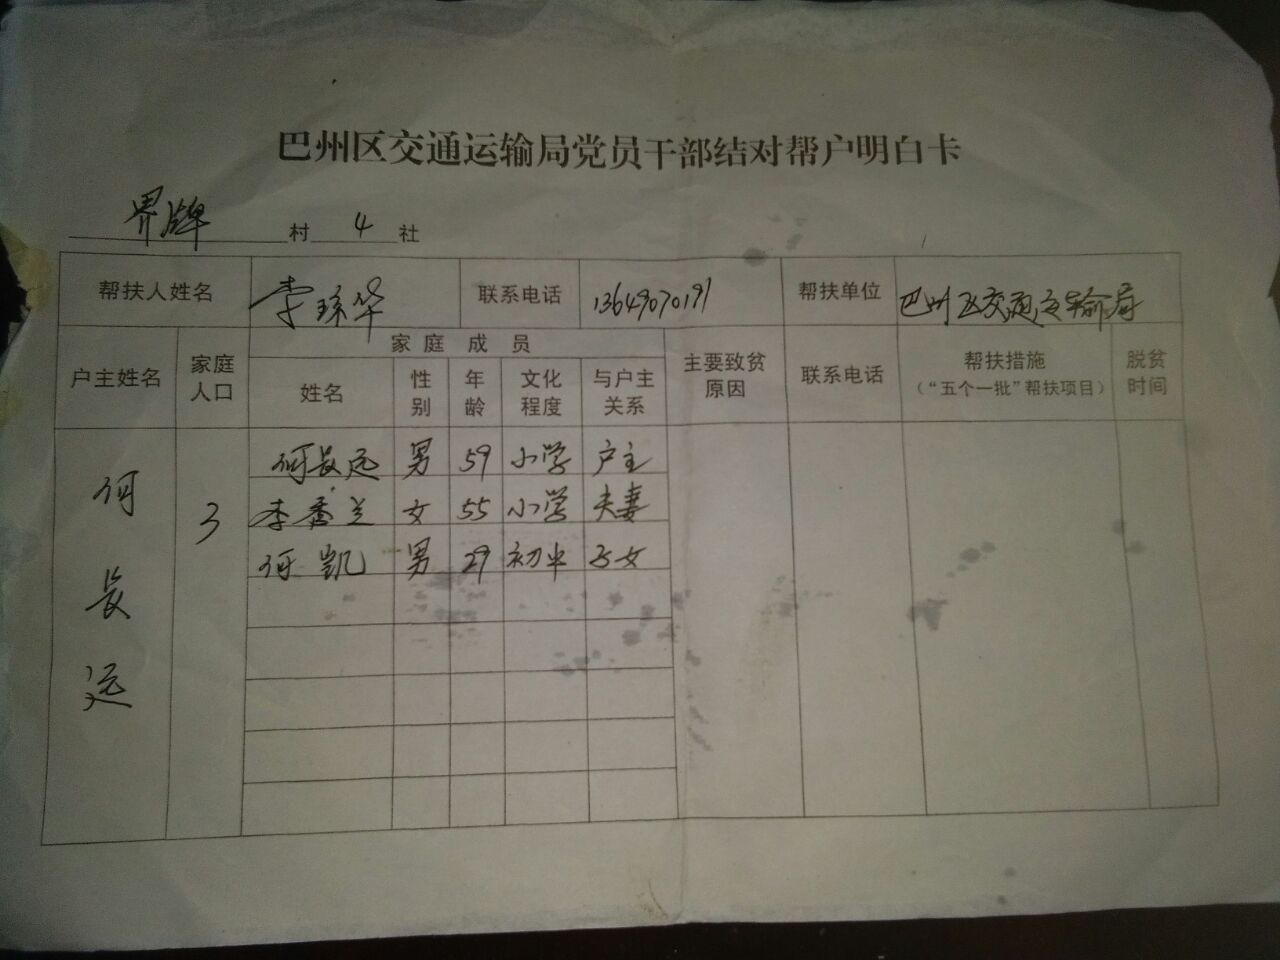 巴州区交通运输局党员干部结对帮户明白卡
界牌 村 4 社
帮扶人姓名 李琼华 联系电话 13649070191 帮扶单位 巴州区交通运输局
户主姓名 家庭人口 家庭成员 主要致贫原因 联系电话 帮扶措施（“五个一批”帮扶项目） 脱贫时间
姓名 性别 年龄 文化程度 与户主关系
何长远 3
何长远 男 59 小学 户主
李香兰 女 55 小学 夫妻
何凯 男 29 初中 子女